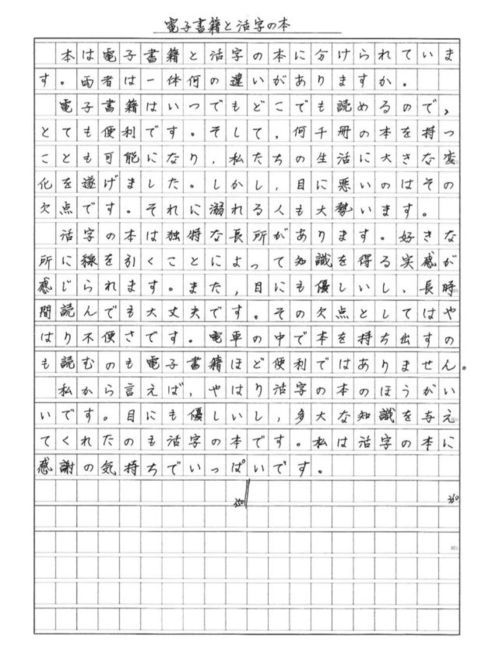 電子書籍と活字の本
本は電子書籍と活字の本に分けられていま
す。両者は一体何の違いがありますか。
電子書籍はいつでもどこでも読めるので、
とても便利です。そして、何千冊の本を持つ
ことも可能になり、私たちの生活に大きな変
化を遂げました。しかし、目に悪いのはその
欠点です。それに溺れる人も大勢います。
活字の本は独特な長所があります。好きな
所に線を引くことによって知識を得る実感が
感じられます。また、目にも優しいし、長時
間読んでも大丈夫です。その欠点としてはや
はり不便さです。電車の中で本を持ち出すの
も読むのも電子書籍ほど便利ではありません。
私から言えば、やはり活字の本のほうがい
いです。目にも優しいし、多大な知識を与え
てくれたのも活字の本です。私は活字の本に
感謝の気持ちでいっぱいです。